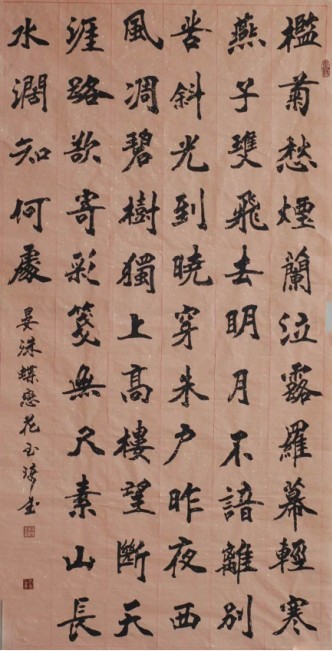 檻菊愁煙蘭泣露羅幕輕寒
燕子雙飛去明月不諳離別
苦斜光到曉穿朱戶昨夜西
風凋碧樹獨上高樓望斷天
涯路欲寄彩箋無尺素山長
水濶知何處
晏殊蝶恋花玉書